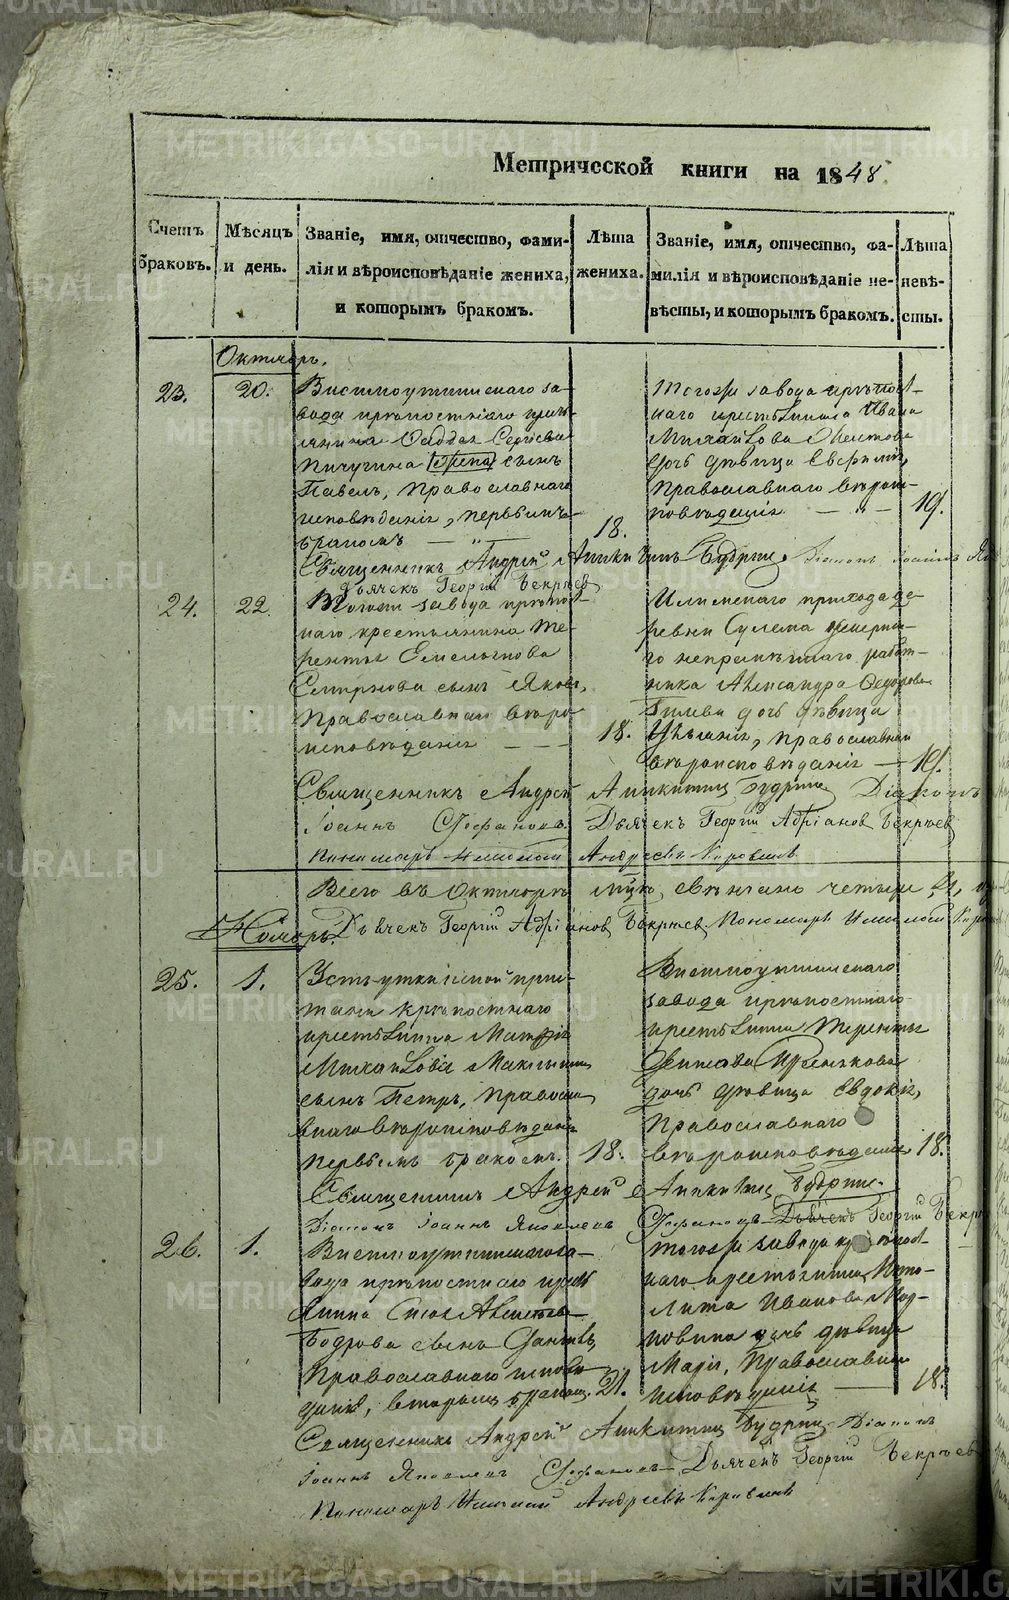 METRIKI.GASO-URAL.RU
Метрической книги на 1848
Счетъ браковъ.
Мѣсяцъ и день.
Званіе, имя, отчество, фами-
лія и вѣроисповѣданіе жениха,
и которымъ бракомъ.
Лѣта
жениха.
Званіе, имя, отчество, фа-
милія и вѣроисповѣданіе не-
вѣсты, и которымъ бракомъ.
Лѣта
невѣ-
сты.
Октябрь.
23.
20.
Висимоуткинскаго за-
вода крѣпостнаго крестъ-
янина Саддея Сергѣева
Пичугина сынъ
Павелъ, Православнаго
исповѣданія, первымъ
бракомъ
18.
тогожъ завода крѣпост-
наго крестьянина Ивана
Михайлова
дочь дѣвица Евфимія,
Православнаго вѣроис-
повѣданія
19.
Священникъ Андрей Аникитинъ Будринъ
Дьячекъ Георгій Бекрѣев
24.
22.
Тогожъ завода крѣпост-
наго крестьянина Те-
рентья Емельянова
Смирнова сынъ Яковъ,
Православнаго вѣро-
исповѣданія
18.
Илимскаго прихода де-
ревни Сулема
го непремѣннаго работ-
ника Александра Федорова
дочь дѣвица
православнаго
вѣроисповѣданія
19.
Священникъ Андрей Аникитинъ Будринъ Діаконъ
Іоаннъ Стефановъ Дьячекъ Георгій Адріанов Бекрѣев
Пономарь Николай Андреевъ Коровинъ
Всего въ Октябрѣ мцѣ, свѣнчано четыре
Дьячекъ Георгій Адріанов Бекрѣев Пономарь Николай
Ноябрь.
25.
1.
Усть-уткинской прис-
тани крѣпостнаго
крестьянина
Михайлова
сынъ Петръ, Правосла
внаго вѣроисповѣданія
первымъ бракомъ.
18.
Висимоуткинскаго
завода крѣпостнаго
крестьянина Терентья
дочь дѣвица Евдокія,
Православнаго
вѣроисповѣданія
18.
Священникъ Андрей Аникитинъ Будринъ
Діаконъ Іоаннъ Яковлевъ Стефановъ Дьячекъ Георгій
26.
1.
Висимоуткинскаго за-
вода крѣпостнаго крест
янина
Бодрова сынъ
Православнаго исповѣ
данія, вторымъ бракомъ.
21.
тогожъ завода крѣпост-
наго крестьянина Иппо-
лита Иванова
дочь дѣвица
Марія, Православнаго
исповѣданія
18.
Священникъ Андрей Аникитинъ Будринъ Діаконъ
Іоаннъ Яковлевъ Стефановъ Дьячекъ Георгій Бекрѣев
Пономарь Николай Андреевъ Коровинъ